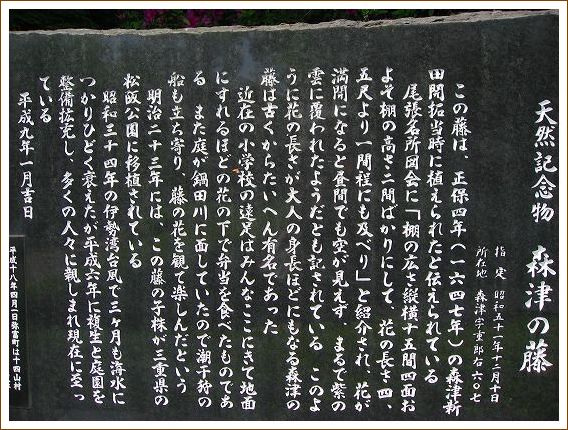 天然記念物　森津の藤
指定　昭和五十二年十二月十日
所在地　森津字重郎右六〇七
この藤は、正保四年（一六四七年）の森津新
田開拓当時に植えられたと伝えられている
尾張名所図会に「棚の広さ縦横十五間四面お
よそ棚の高さ二間ばかりにして、花の長さ四、
五尺より一間程にも及べり」と紹介され、花が
満開になると昼間でも空が見えず、まるで紫の
雲に覆われたようだとも記されている　このよ
うに花の長さが大人の身長ほどにもなる森津の
藤は古くからたいへん有名であった
近在の小学校の遠足はみんなここにきて地面
にすれるほどの花の下で弁当を食べたものであ
る　また庭が鍋田川に面していたので潮干狩の
船も立ち寄り、藤の花を観て楽しんだという
明治二十三年には、この藤の子株が三重県の
松阪公園に移植されている
昭和三十四年の伊勢湾台風で三ヶ月も海水に
つかりひどく衰えたが平成六年に複生と庭園を
整備拡充し、多くの人々に親しまれ現在に至っ
ている
平成九年一月吉日
平成十八年四月一日弥富町は十四山村